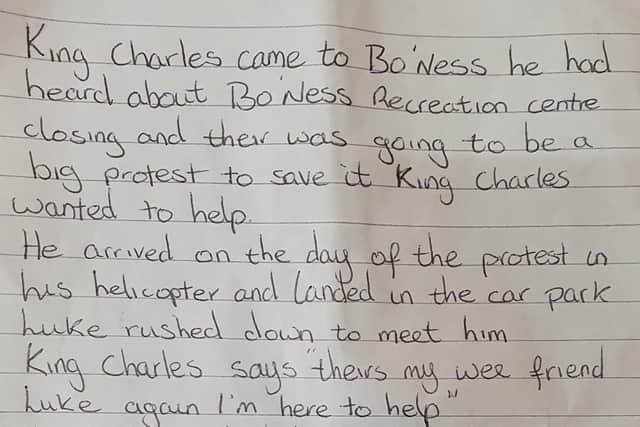 King Charles came to Bo'Ness he had
heard about Bo'Ness Recreation centre
closing and their was going to be a
big protest to save it King Charles
wanted to help.
He arrived on the day of the protest in
his helicopter and landed in the car park
Luke rushed down to meet him
King Charles says "theirs my wee friend
Luke again I'm here to help"